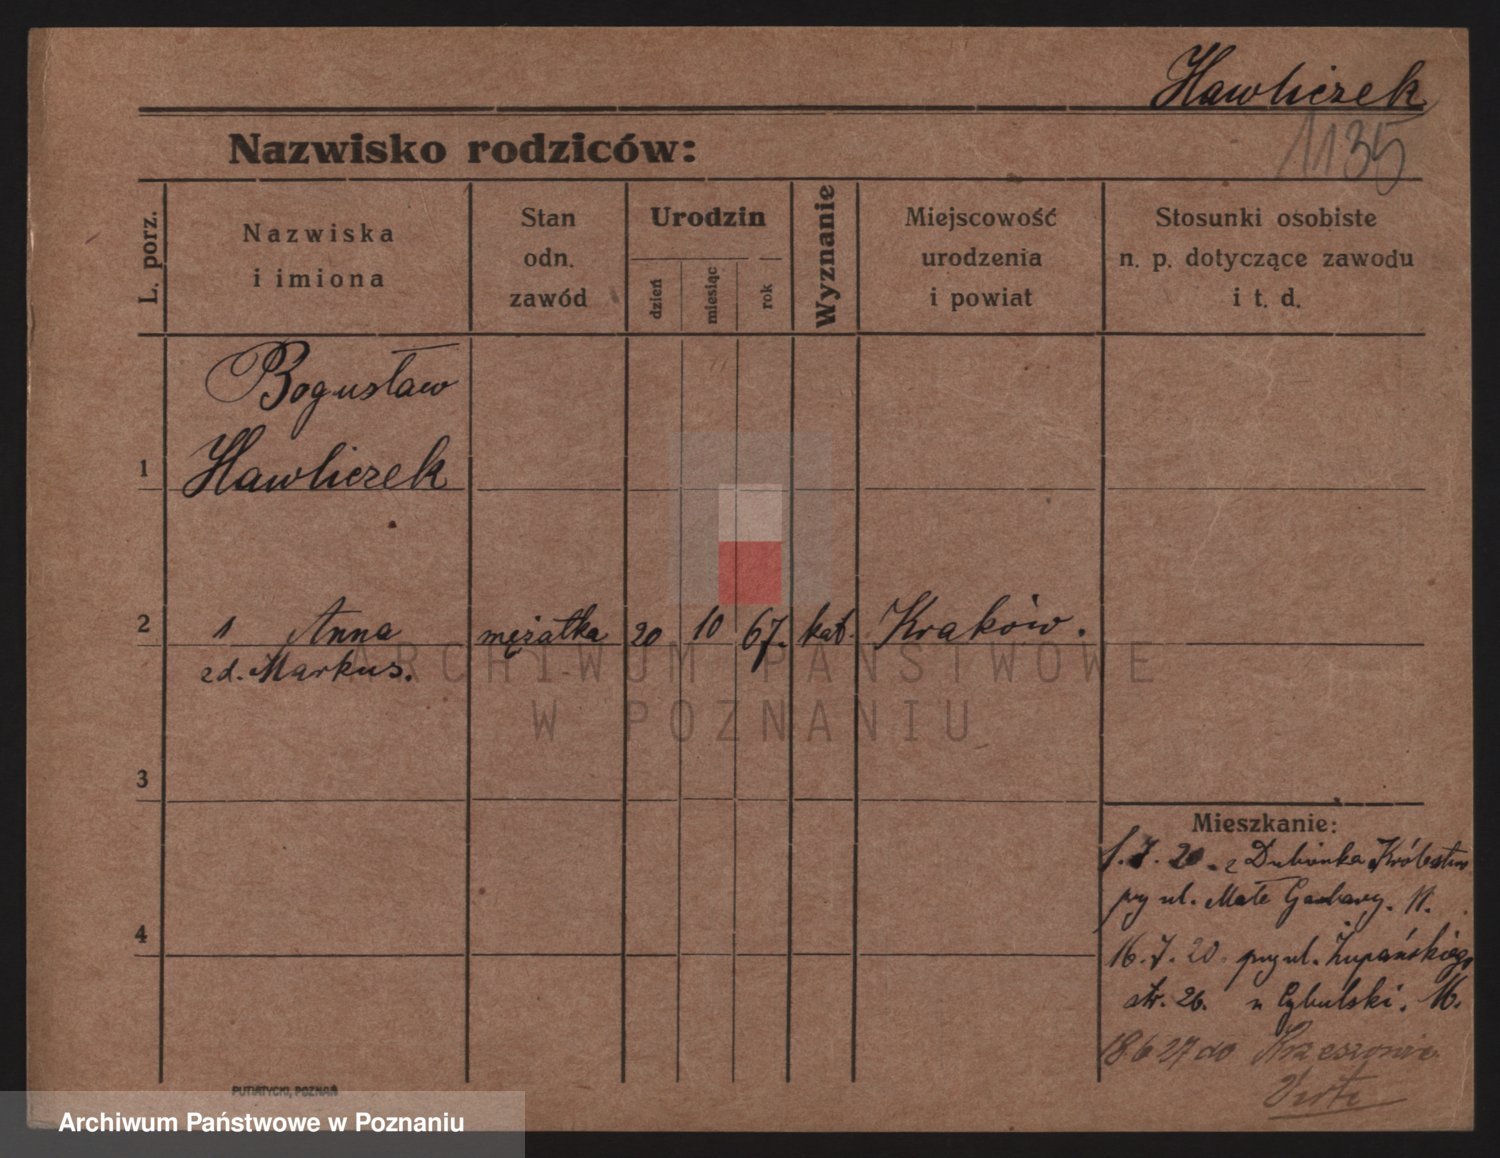 Hawliczek
1135
Nazwisko rodziców:
L. porz.
Nazwiska
i imiona
Stan
odn.
zawód
Urodzin
dzień
miesiąc
rok
Wyznanie
Miejscowość
urodzenia
i powiat
Stosunki osobiste
n. p. dotyczące zawodu
i t. d.
Bogusław
1 Hawliczek
2 1 Anna mężatka 20 10 67. kat. Kraków.
zd. Markus.
ARCHIWUM PAŃSTWOWE
W POZNANIU
3
Mieszkanie:
1.7.20. z Dubienka
ul. Małe Garbary. 11.
4
16.7.20. przy ul. Żupańskiego
str. 26. u Cybulski. M.
18 6 27 do
PUTIATYCKI, POZNAŃ
Archiwum Państwowe w Poznaniu